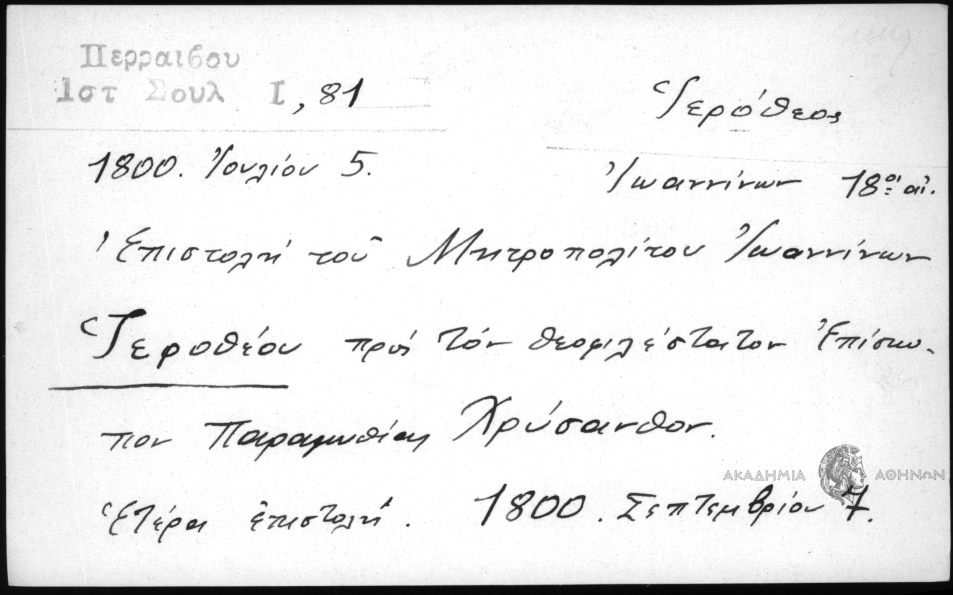 Περραιβου
Ιστ Σουλ I, 81
Ἱερόθεος
1800. Ἰουλίου 5.
Ἰωαννίνων 18ος αἰ.
Ἐπιστολή τοῦ Μητροπολίτου Ἰωαννίνων
Ἱεροθέου πρός τόν θεοφιλέστατον Ἐπίσκο-
πον Παραμυθίας Χρύσανθον.
ΑΚΑΔΗΜΙΑ ΑΘΗΝΩΝ
Ἑτέρα ἐπιστολή. 1800. Σεπτεμβρίου 7.